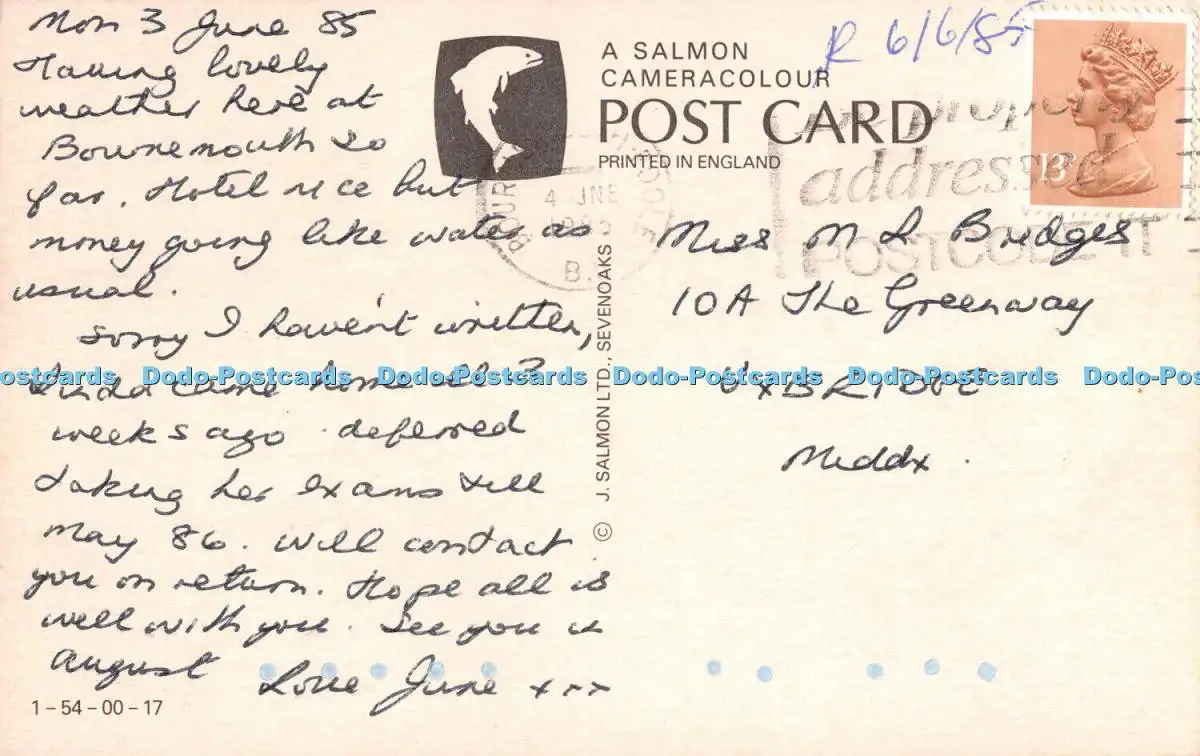 Mon 3 June 85
Having lovely
weather here at
Bournemouth so
far. Hotel nice but
money going like water as
usual.
Sorry I haven't written,
Linda came home ill 3
weeks ago deferred
taking her exams till
May 86. Will contact
you on return. Hope all is
well with you. See you in
August
Love June xxx
1-54-00-17
A SALMON
CAMERACOLOUR
POST CARD
PRINTED IN ENGLAND
© J. SALMON LTD., SEVENOAKS
R 6/6/85
4 JNE
1985
B.
properly
addressed
POSTCODE IT
13P
Miss M L Bridges
10A The Greenway
UXBRIDGE
Middx.
Dodo-Postcards Dodo-Postcards Dodo-Postcards Dodo-Postcards